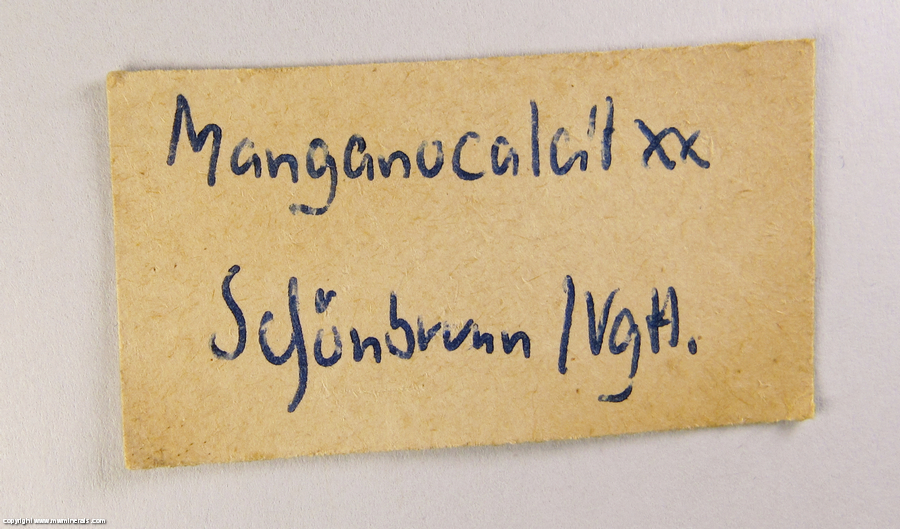 Manganocalcit xx
Schönbrunn / Vgtl.
copyright www.mwminerals.com